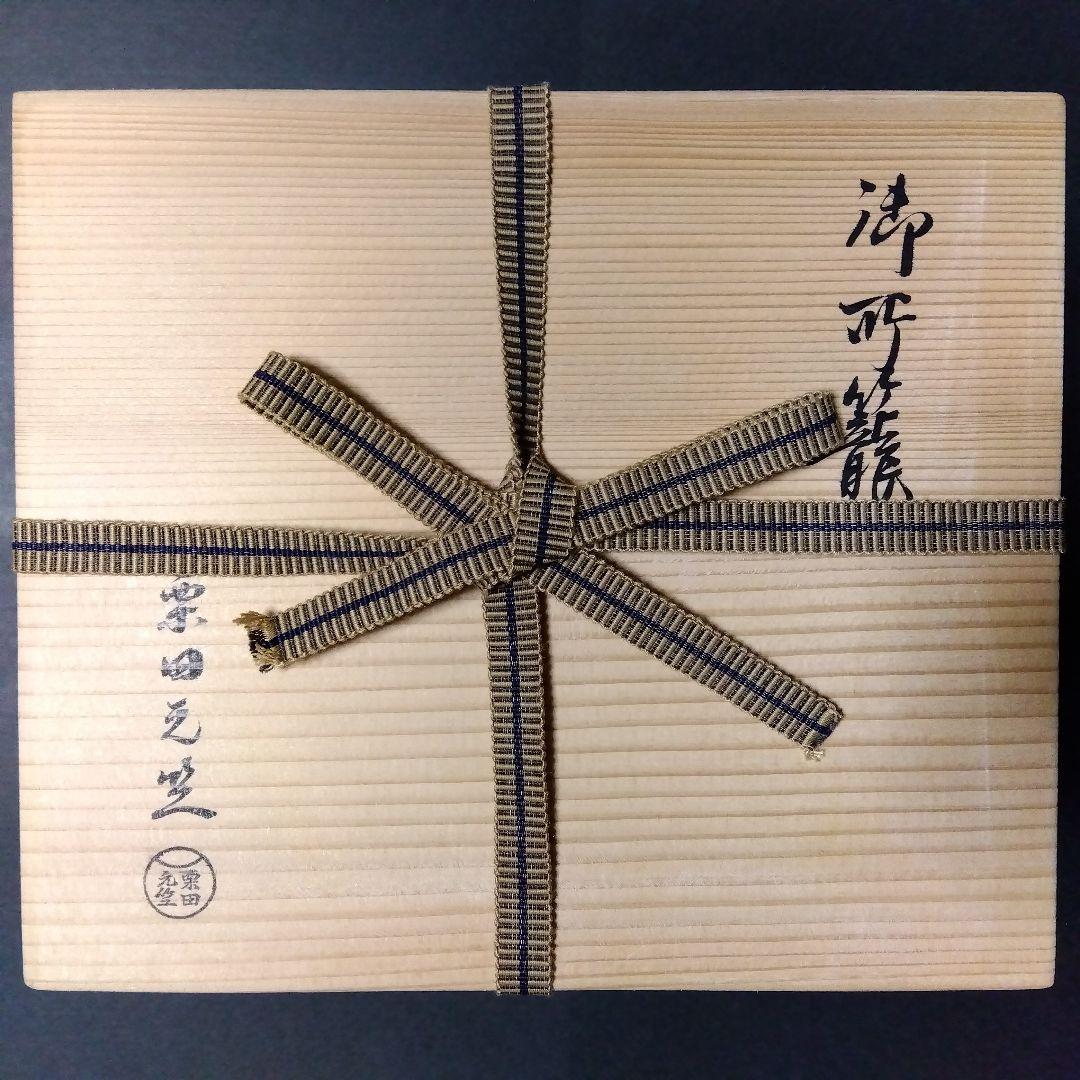 御所籠
栗田元竺
栗田
元竺